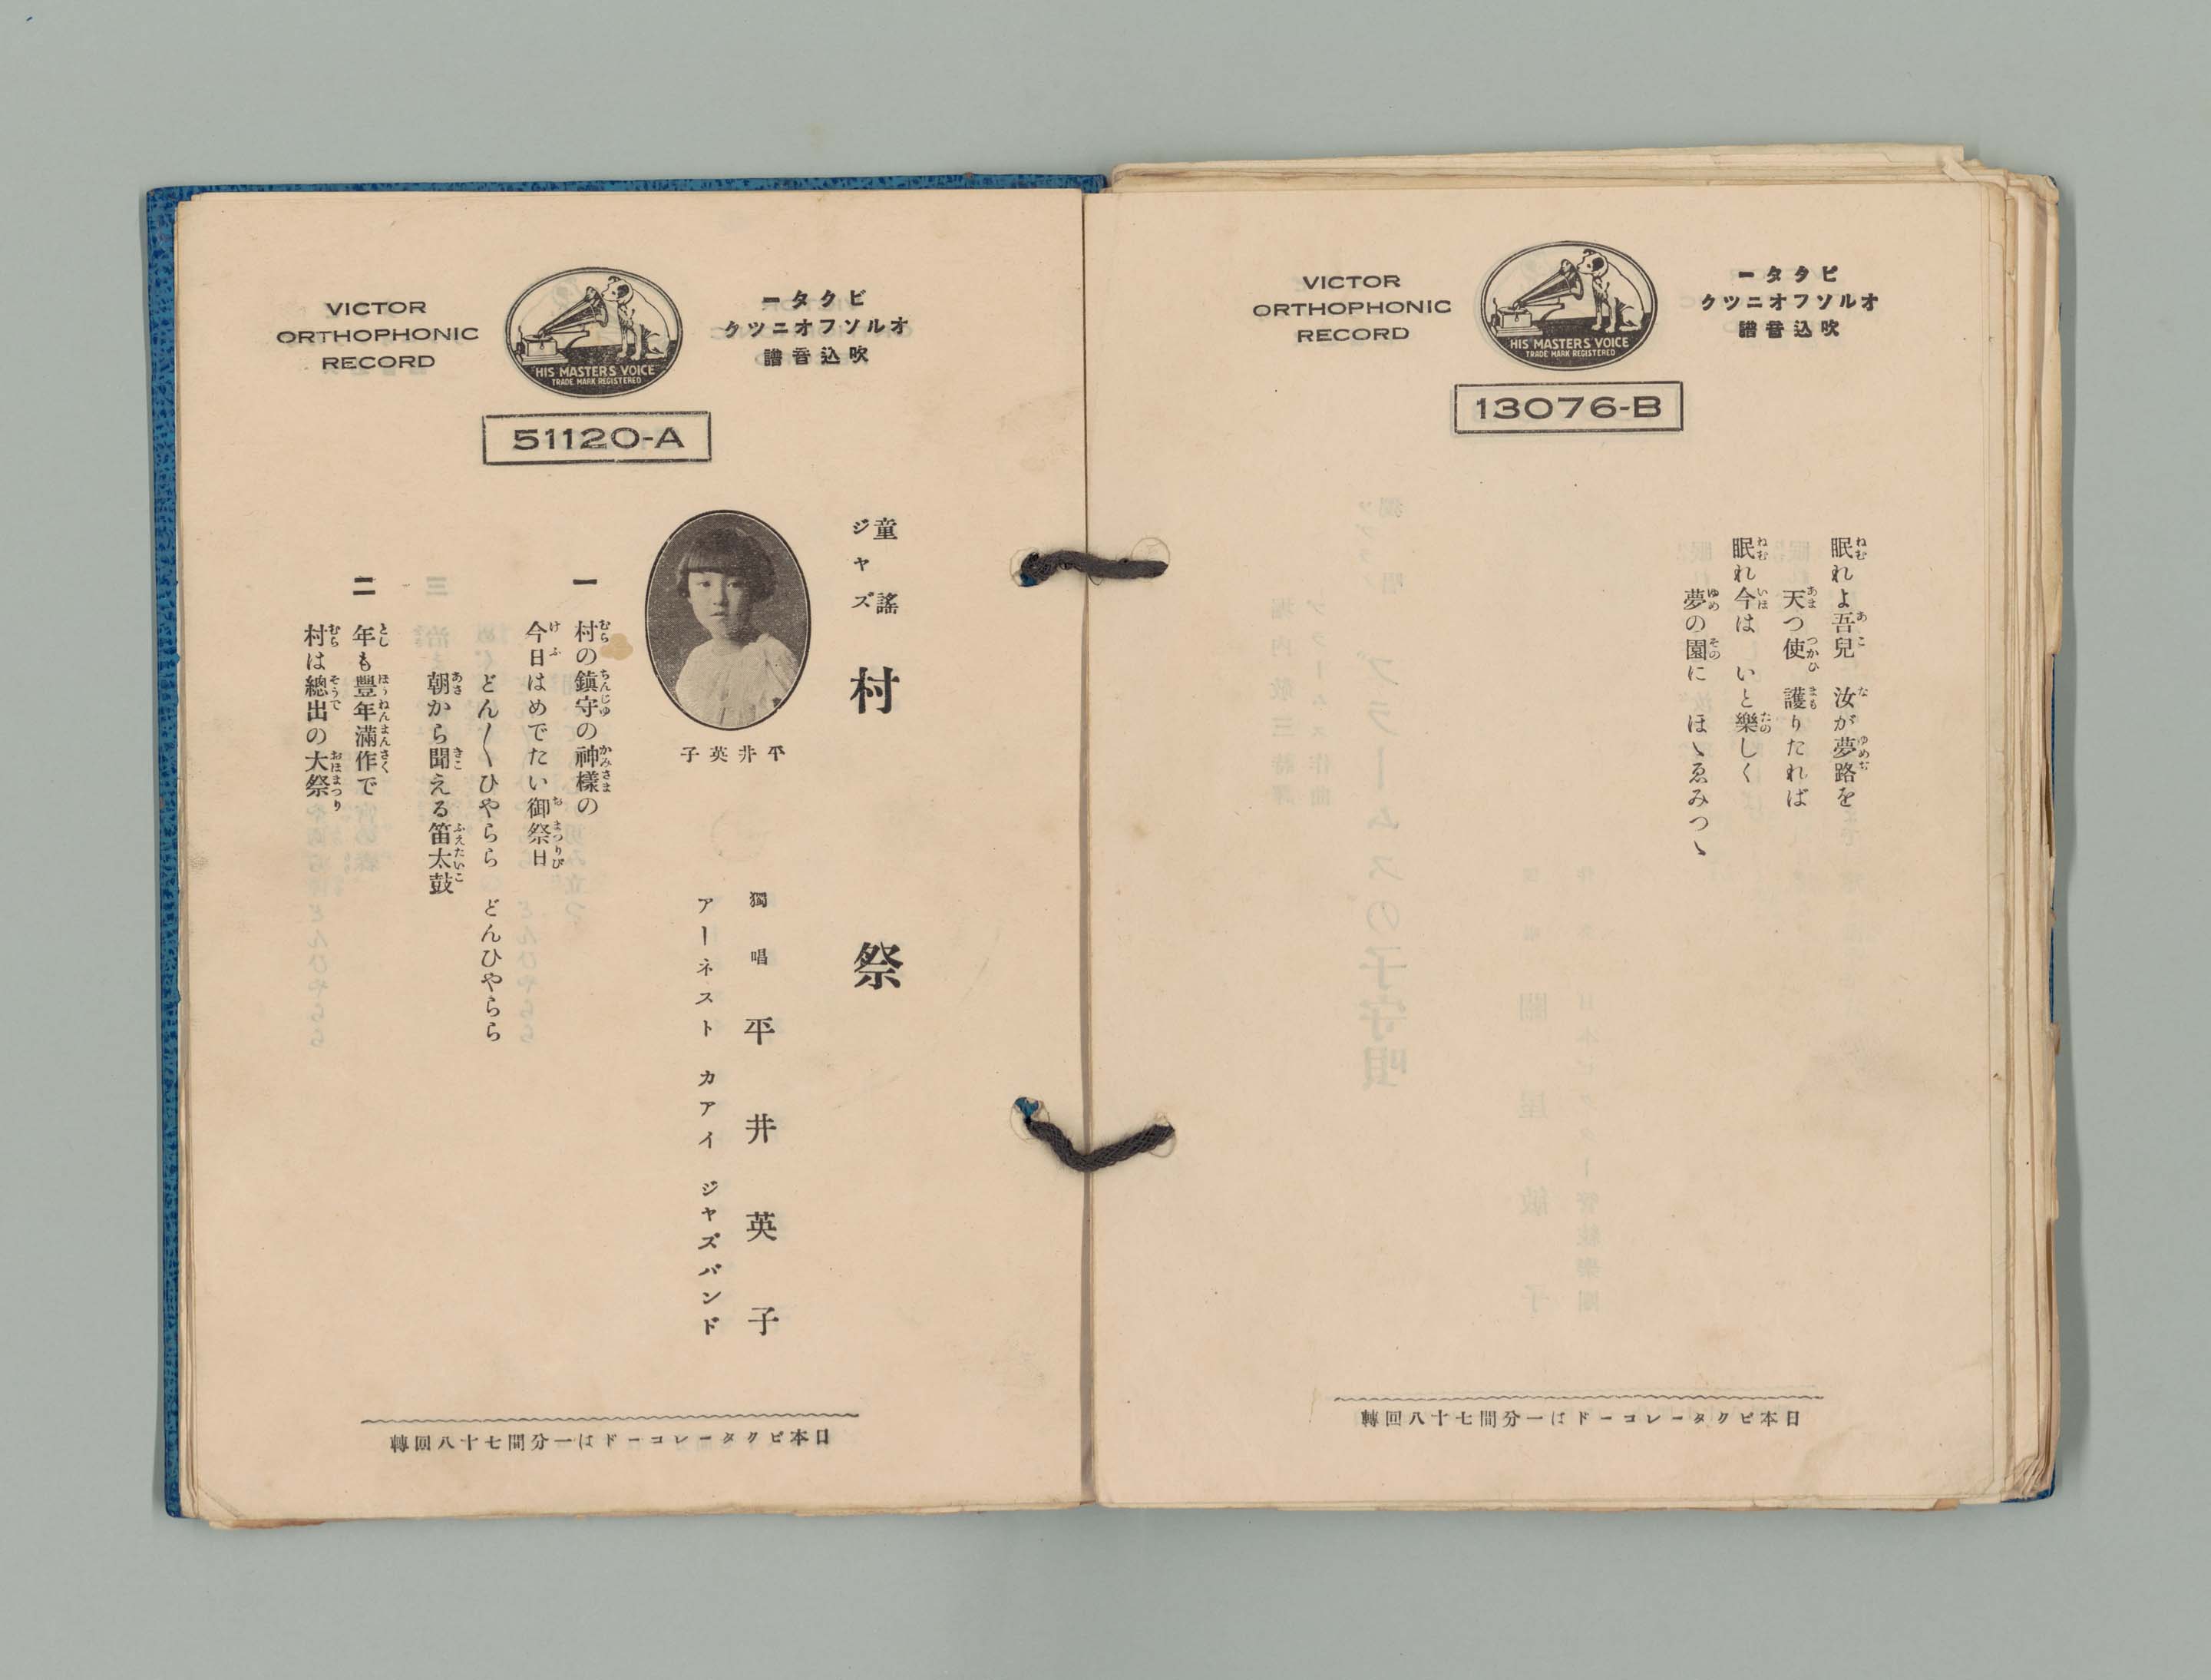 VICTOR
ORTHOPHONIC
RECORD
HIS MASTER'S VOICE
TRADE MARK REGISTERED
ビクター
オルソフオニツク
吹込音譜
13076-B
眠れよ吾兒　汝が夢路を
天つ使　護りたれば
眠れ今は　いと樂しく
夢の園に　ほゝゑみつゝ
日本ビクターレコードは一分間七十八回轉
VICTOR
ORTHOPHONIC
RECORD
"HIS MASTER'S VOICE"
TRADE MARK REGISTERED
ビクター
オルソフオニツク
吹込音譜
51120-A
童謠
ジャズ
村祭
平井英子
獨唱　平井英子
アーネスト　カアイ　ジャズバンド
一　村の鎭守の神様の
今日はめでたい御祭日
どん〳〵ひやらら　どんひやらら
朝から聞える笛太鼓
二　年も豐年滿作で
村は總出の大祭
日本ビクターレコードは一分間七十八回轉